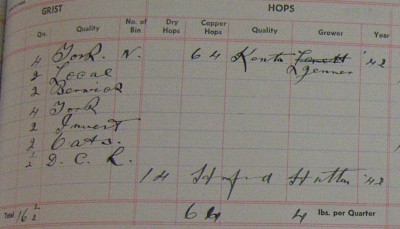 GRIST HOPS
Qn. Quality No. of Bin Dry Hops Copper Hops Quality Grower Year
4 York. N. 64 Kents Jenner '42
2 Local
2 Berwick
4 York
2 Invest
2 Oats.
1/2 D. C. R.
14 Hatton '42
Total 16 1/2 64 4 lbs. per Quarter